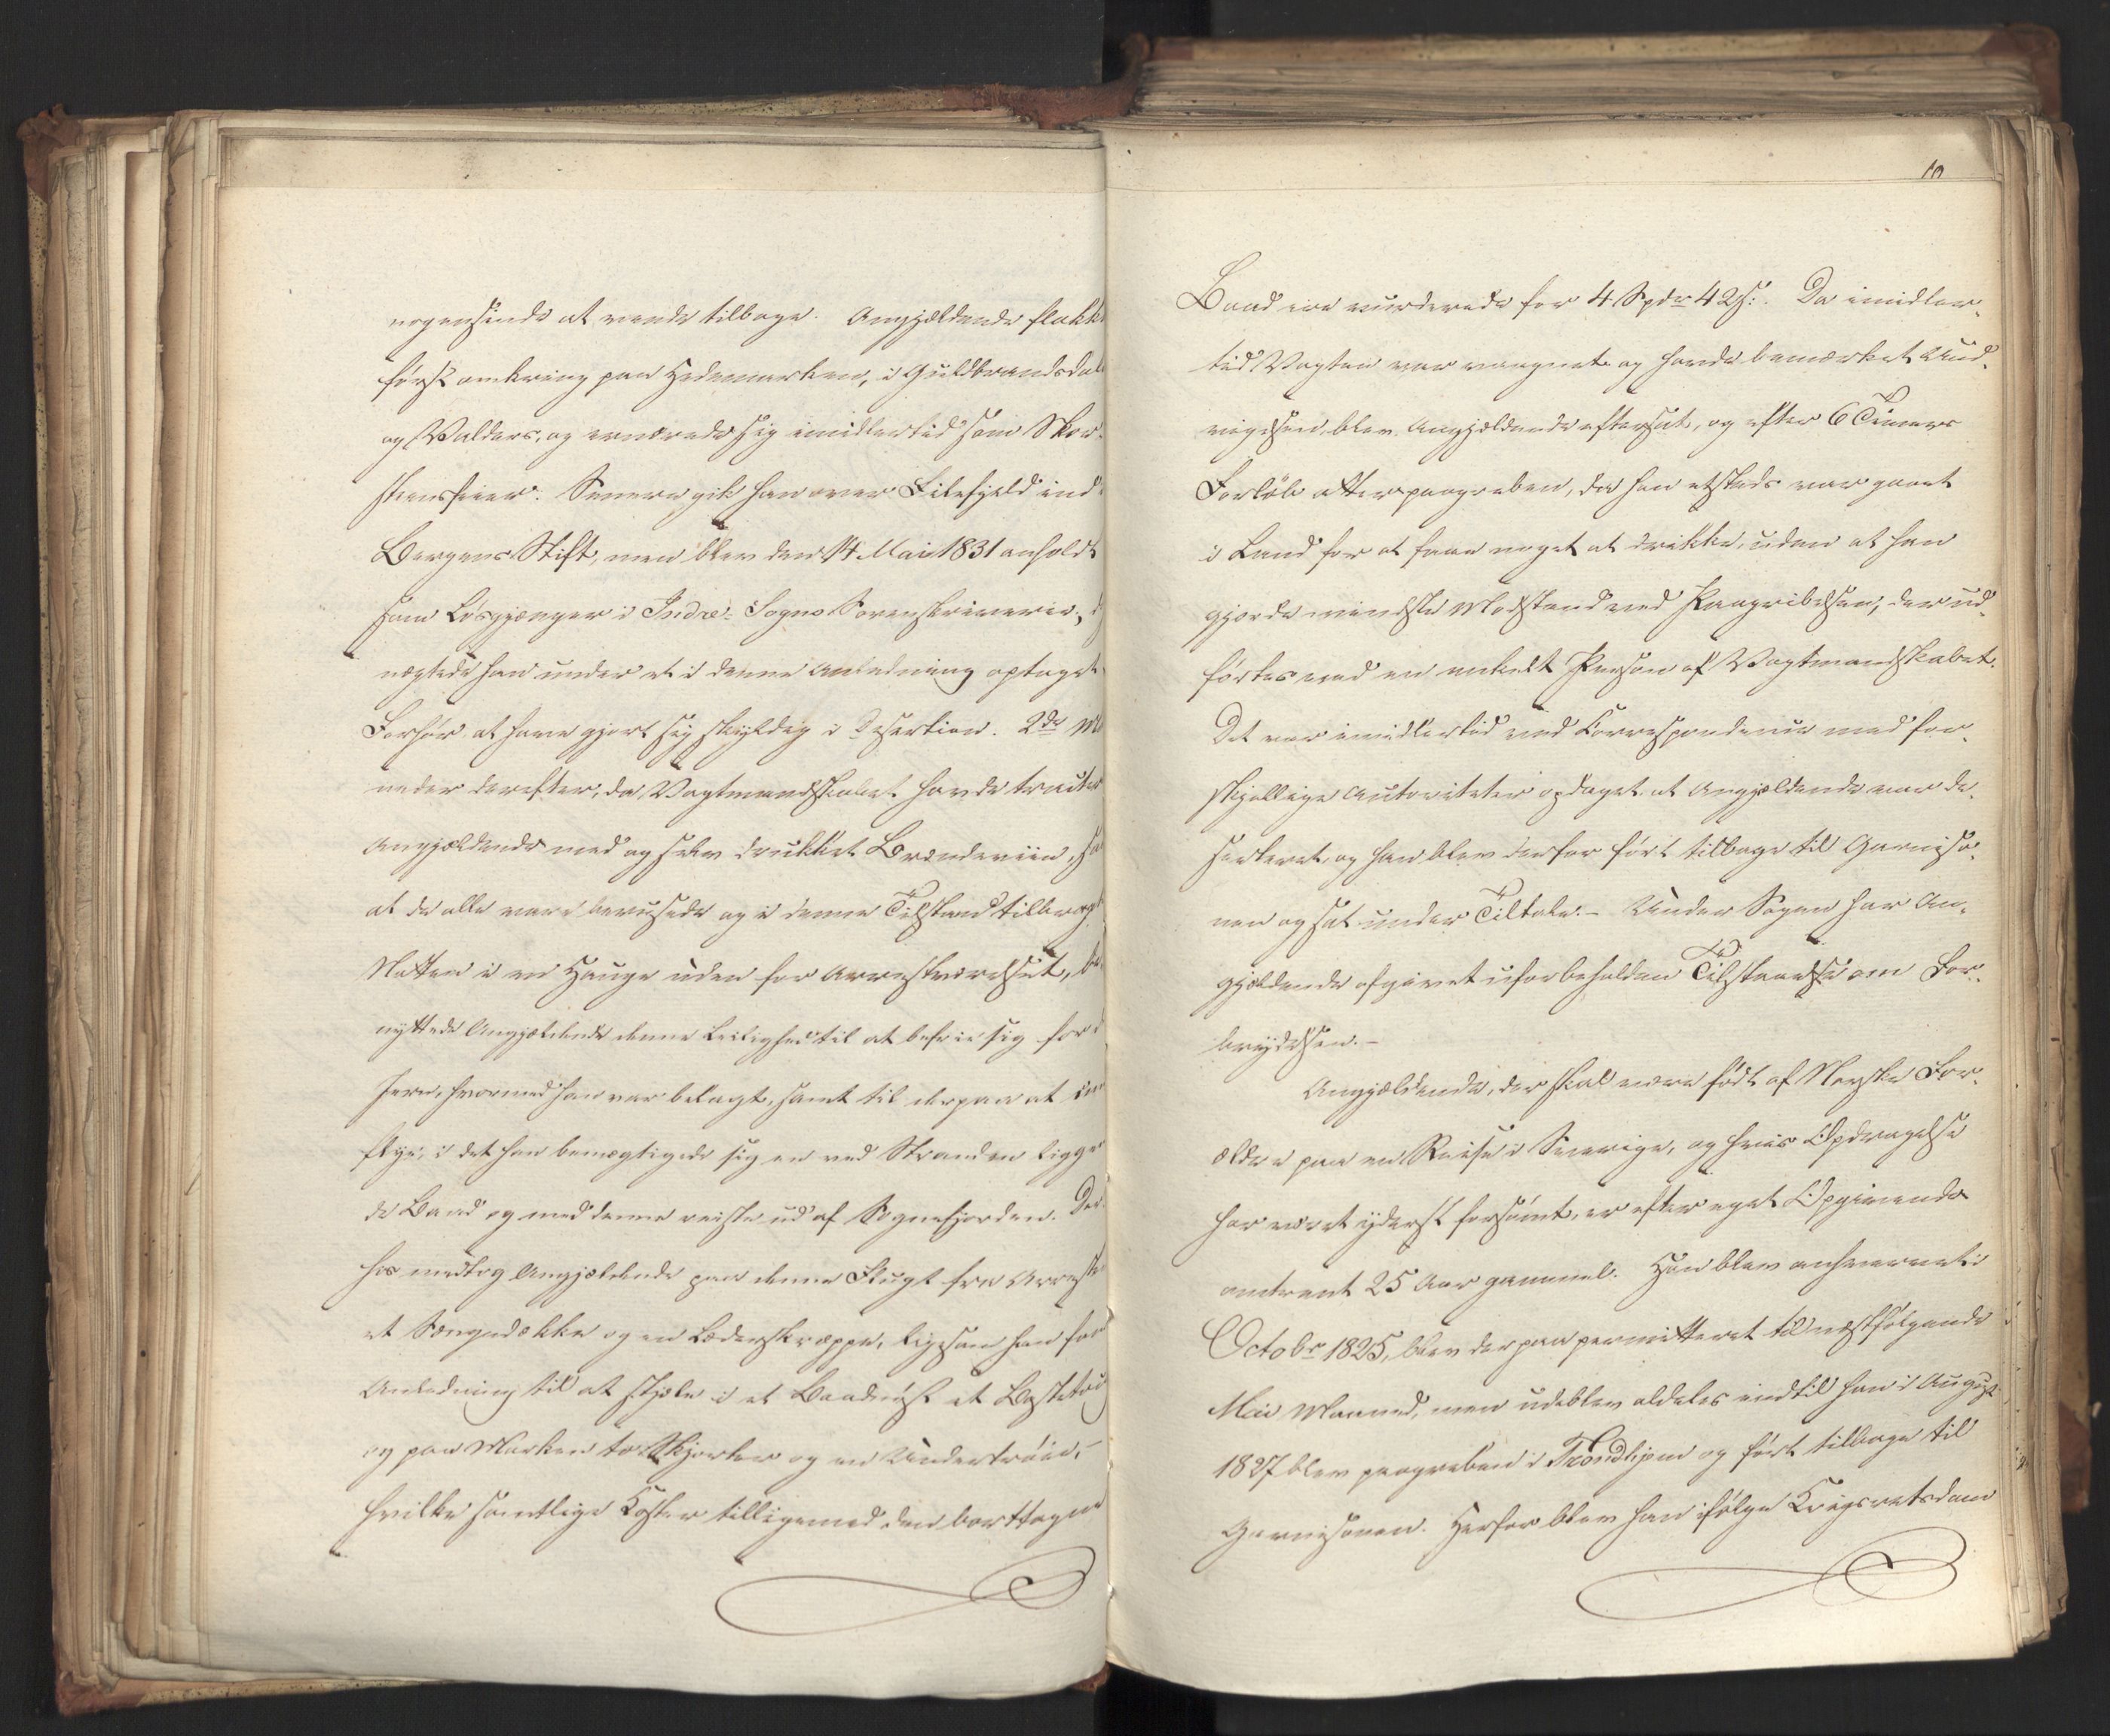 nogensinde at vende tilbage. Angjældende flakke
først omkring paa Hedemarken, i Guldbrandsdale
og Valders, og ernærede sig imidlertid som Skor-
steensfeier. Senere gik han over Filefjeld ind i
Bergens Stift, men blev den 14 Mai 1831 anholdt
som Løsgjænger i Indre-Sogns Sorenskriverie,
nægtede han under et i denne Anledning optaget
Forhør at have gjort sig skyldig i Desertion. 2de Ma
neder derefter, da Vagtmandskabet havde tracter
Angjældende med og selv drukket Brændeviin, saa
at de alle vare berusede og i denne Tilstand tilbragt
Natten i en Hauge uden for Arresthuuset, be-
nyttede Angjældende denne Leilighed til at befrie sig for d
Jern, hvormed han var belagt, samt til derpaa at und
flye, i det han bemægtigede sig en ved Stranden ligge
de Baad og med denne reiste ud af Sognefjorden. Der-
hos medtog Angjældende paa denne Flugt fra Arreste
et Sængedække og en Læderskræppe, ligesom han fan
Anledning til at stjæle i et Baadnøst et
og paa Marken to Skjorter og en Undertrøie,
hvilke samtlige Koster tilligemed den borttagne
10
Baad ere vurderede for 4 Spdr 42 s. Da imidler-
tid Vagten var vaagnet og havde bemærket Und-
vigelsen, blev Angjældende eftersat, og efter 6 Timers
Forløb atter paagreben, da han etsteds var gaaet
i Land for at faae noget at drikke, uden at han
gjorde mindste Modstand ved Paagribelsen, der ud-
førtes ved en enkelt Person af Vagtmandskabet.
Det var imidlertid ved Correspondence med for-
skjellige Autoriteter opdaget at Angjældende var de-
serteret, og han blev derfor ført tilbage til Garniso-
nen og sat under Tiltale.- Under Sagen har An-
gjældende afgivet uforbeholden Tilstaaelse om For-
brydelsen.-
Angjældende, der skal være født af Norske For-
ældre paa en Reise i Sverige, og hvis Opdragelse
har været yderst forsømt, er efter eget Opgivende
omtrent 25 Aar gammel. Han blev anhvervet i
Octobr 1825, blev derpaa permitteret til næstfølgende
Mai Maaned, men udeblev aldeles indtil han i August
1827 blev paagreben i Trondhjem og ført tilbage til
Garnisonen. Herfor blev han ifølge Krigsretsdom